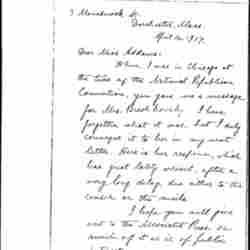 Dorchester, Mass.
Dear Miss Addams:
When I was in Chicago at
the time of the National Republican
Convention, you gave me a message
for Mrs. I have
forgotten what it was, but I duly
conveyed it to her in my next
letter. Here is her response, which
has just lately arrived, after a
very long delay, due either to the
censor or the mails.
I hope you will give
out to the Associated Press as
much of it as is of public